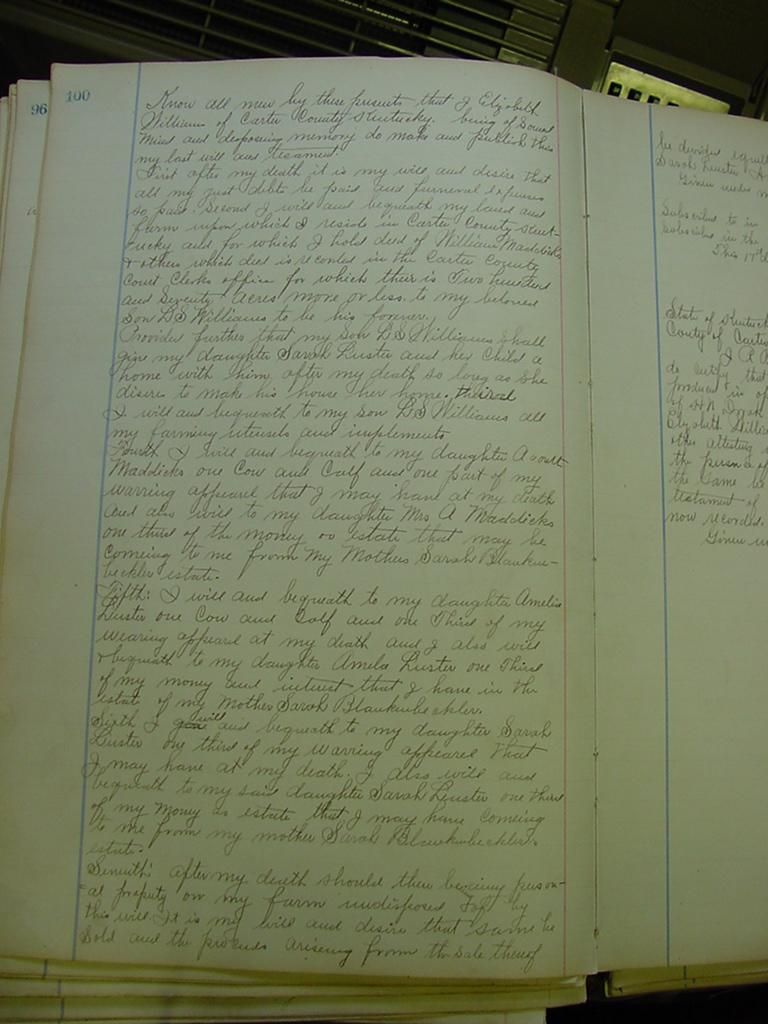 96
100
Know all men by these presents that I Elizabeth
Williams of Carter County Kentucky. being of Sound
Mind and desposeing memory do make and publish this
my last will and testament.
First after my death it is my will and desire that
all my just debts be paid and funeral expenses
so paid. Second I will and bequeath my land and
farm upon which I reside in Carter County Kent-
ucky and for which I hold deed of William Maddicks
& others which deed is recorded in the Carter County
Court Clerks office for which their is Two hundred
and Seventy Acres more or less. to my beloved
Son L S Williams to be his forever.
Provided further that my Son L S Williams Shall
give my daughter Sarah Luster and her Child a
home with him after my death so long as She
disire to make his house her home. Third
I will and bequeath to my son L S Williams all
my farming utensels and implements
Fourth I will and bequeath to my daughter
Maddicks one Cow and Calf and one part of my
warring appearel that I may have at my death
and also will to my daughter Mrs A Maddicks
one third of the money or estate that may be
comeing to me from My Mothers Sarah Blanken-
beckler estate.
Fifth: I will and bequeath to my daughter Amelia
Luster one Cow and Calf and one Third of my
wearing appearel at my death and I also will
& bequeath to my daughter Amela Luster one Third
of my money and interest that I have in the
estate of my Mother Sarah Blankenbeckler.
Sixth I will and bequeath to my daughter Sarah
Luster one third of my warring appearel that
I may have at my death. I also will and
bequeath to my said daughter Sarah Luster one third
of my money or estate that I may have comeing
to me from my mother Sarah Blankenbeckler
estate.
Seventh: after my death should their be any person-
al property on my farm undisposed of by
this will It is my will and desire that same be
Sold and the proceeds ariseing from the sale thereof
be divided equall
Sarah Luster A
Given under m
Subscribed to in
Subscribed in the
This 17th
State of Kentuck
County of Carter
I R A
do certify that
produced in of
of H N
Elizabeth Willia
other attesting
the presence of
the Same be
testament of
now recorded.
Given un